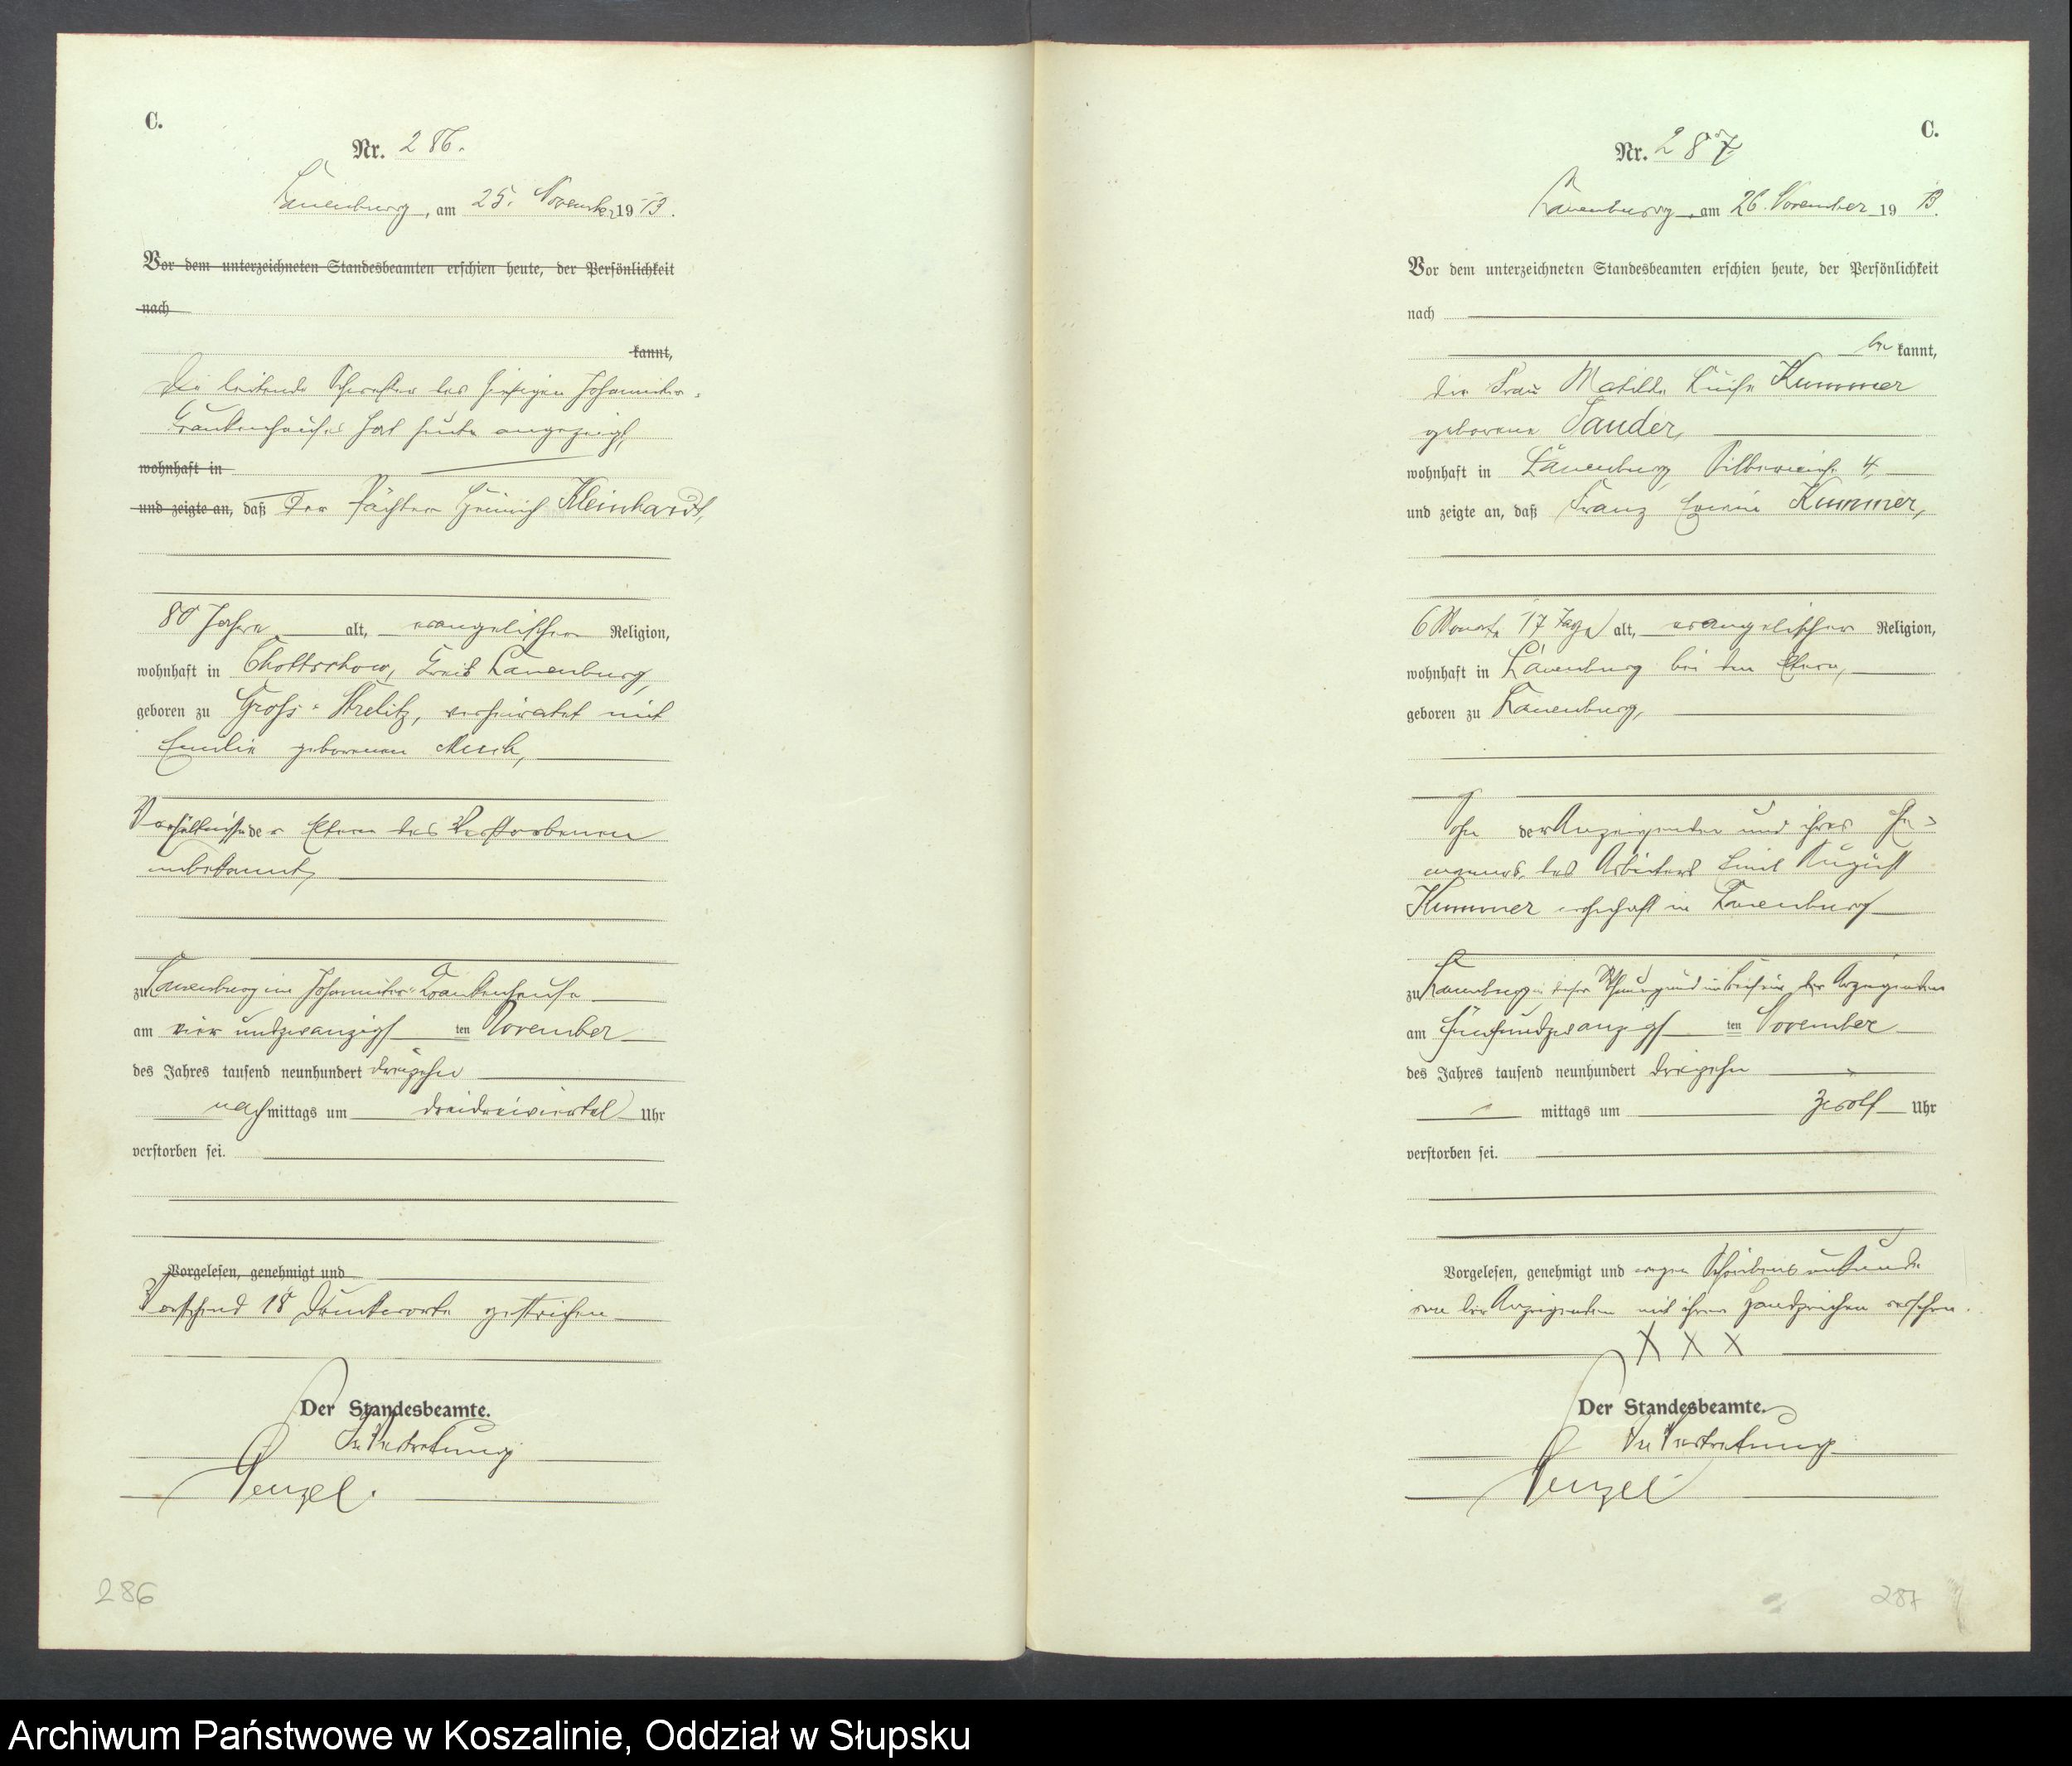 C.
Nr. 286.
Lauenburg, am 25. November 1913.
Vor dem unterzeichneten Standesbeamten erschien heute, der Persönlichkeit
nach
kannt,
Die leitende Schwester des hiesigen Johanniter-
Krankenhauses hat heute angezeigt,
wohnhaft in
und zeigte an, daß der Pächter Heinrich Kleinhardt,
80 Jahre alt, evangelischer Religion,
wohnhaft in Chottschow, Kreis Lauenburg,
geboren zu Groß-Strelitz, verheiratet mit
Emilie geborenen
Verhältnisse der Eltern des Verstorbenen
unbekannt,
zu Lauenburg im Johanniter-Krankenhause
am vierundzwanzigsten November
des Jahres tausend neunhundert dreizehn
nachmittags um dreidreiviertel Uhr
verstorben sei.
Vorgelesen, genehmigt und
Vorstehend 18 Druckworte gestrichen
Der Standesbeamte.
In Vertretung
Penzel.
286
C.
Nr. 287
Lauenburg, am 26. November 1913.
Vor dem unterzeichneten Standesbeamten erschien heute, der Persönlichkeit
nach
be kannt,
die Frau Matilde Luise Kummer
geborene Sander,
wohnhaft in Lauenburg 4,
und zeigte an, daß Franz Erwin Kummer,
6 Monate 17 Tage alt, evangelischer Religion,
wohnhaft in Lauenburg bei den Eltern,
geboren zu Lauenburg,
Sohn der Anzeigenden und ihres Ehe-
mannes, des Arbeiters Emil August
Kummer wohnhaft in Lauenburg
zu Lauenburg in dieser Wohnung und im Beisein der Anzeigenden
am fünfundzwanzigsten November
des Jahres tausend neunhundert dreizehn
mittags um zwölf Uhr
verstorben sei.
Vorgelesen, genehmigt und wegen Schreibensunkunde
von der Anzeigenden mit ihrem Handzeichen versehen.
X X X
Der Standesbeamte.
In Vertretung
Penzel
287
Archiwum Państwowe w Koszalinie, Oddział w Słupsku